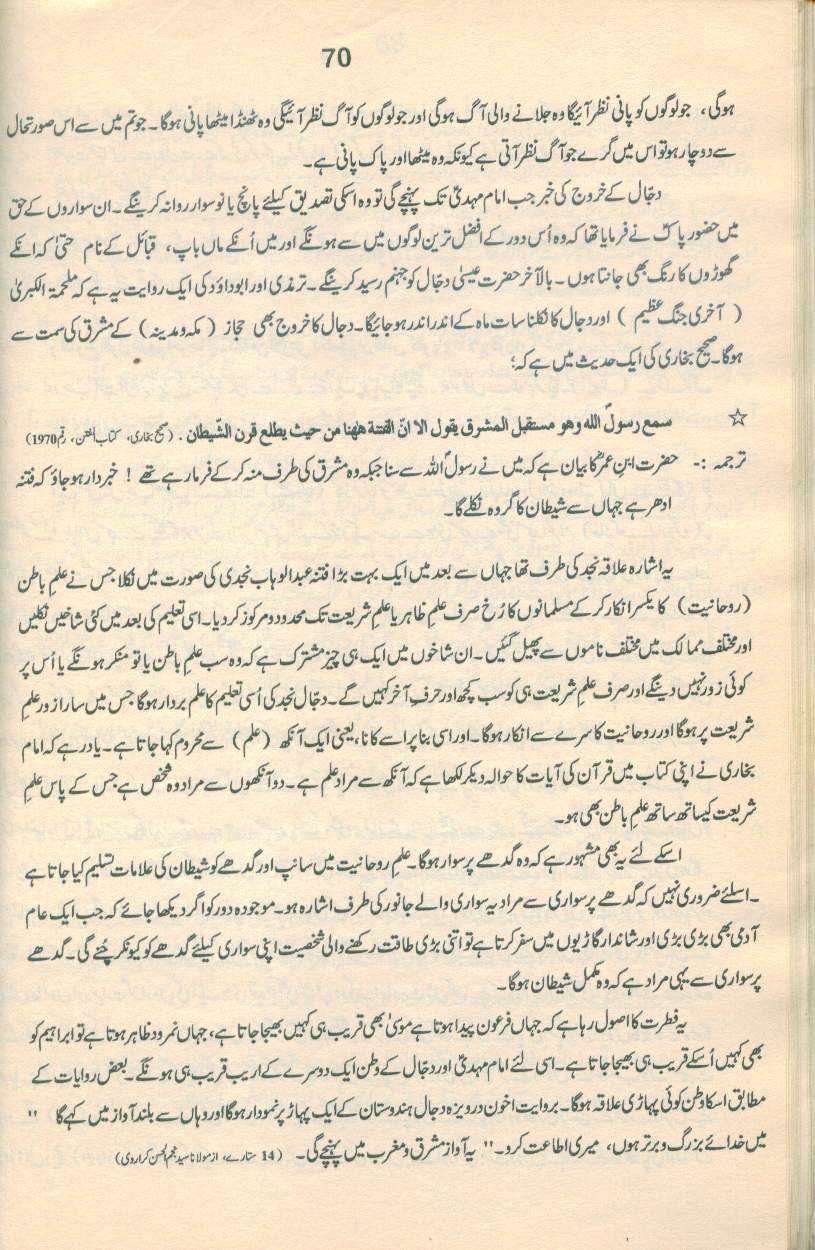 70
ہوگی، جو لوگوں کو پانی نظر آئیگا وہ جلانے والی آگ ہوگی اور جو لوگوں کو آگ نظر آئیگی وہ ٹھنڈا میٹھا پانی ہوگا۔ جو تم میں سے اس صورتحال
سے دوچار ہو تو اس میں گرے جو آگ نظر آتی ہے کیونکہ وہ میٹھا اور پاک پانی ہے۔
دجّال کے خروج کی خبر جب امام مہدیؑ تک پہنچے گی تو وہ اسکی تصدیق کیلئے پانچ یا نو سوار روانہ کرینگے۔ ان سواروں کے حق
میں حضور پاکؐ نے فرمایا تھا کہ وہ اُس دور کے افضل ترین لوگوں میں سے ہونگے اور میں اُنکے ماں باپ، قبائل کے نام حتیٰ کہ انکے
گھوڑوں کا رنگ بھی جانتا ہوں۔ بالآخر حضرت عیسیٰ دجّال کو جہنم رسید کرینگے۔ ترمذی اور ابوداؤد کی ایک روایت یہ ہے کہ ملحمۃ الکبریٰ
( آخری جنگ عظیم ) اور دجال کا نکلنا سات ماہ کے اندر اندر ہوجائیگا۔ دجال کا خروج بھی حجاز ( مکہ و مدینہ ) کے مشرق کی سمت سے
ہوگا۔ صحیح بخاری کی ایک حدیث میں ہے کہ؛
☆ سمع رسولؐ الله وهو مستقبل المشرق يقول الا انّ الفتنة ههنا من حيث يطلع قرن الشّيطان . (صحیح بخاری، کتاب الفتن، رقم 1970)
ترجمہ :- حضرت ابنِ عمرؓ کا بیان ہے کہ میں نے رسولؐ اللہ سے سنا جبکہ وہ مشرق کی طرف منہ کرکے فرما رہے تھے ! خبردار ہوجاؤ کہ فتنہ
ادھر ہے جہاں سے شیطان کا گروہ نکلے گا۔
یہ اشارہ علاقہ نجد کی طرف تھا جہاں سے بعد میں ایک بہت بڑا فتنہ عبدالوہاب نجدی کی صورت میں نکلا جس نے علمِ باطن
(روحانیت) کا یکسر انکار کرکے مسلمانوں کا رُخ صرف علمِ ظاہر یا علمِ شریعت تک محدود و مرکوز کردیا۔ اسی تعلیم کی بعد میں کئی شاخیں نکلیں
اور مختلف ممالک میں مختلف ناموں سے پھیل گئیں۔ ان شاخوں میں ایک ہی چیز مشترک ہے کہ وہ سب علمِ باطن یا تو منکر ہونگے یا اُس پر
کوئی زور نہیں دینگے اور صرف علمِ شریعت ہی کو سب کچھ اور حرفِ آخر کہیں گے۔ دجّال نجد کی اُسی تعلیم کا علم بردار ہوگا جس میں سارا زور علمِ
شریعت پر ہوگا اور روحانیت کا سرے سے انکار ہوگا۔ اور اسی بنا پر اسے کانا، یعنی ایک آنکھ (علم) سے محروم کہا جاتا ہے۔ یاد رہے کہ امام
بخاری نے اپنی کتاب میں قرآن کی آیات کا حوالہ دیکر لکھا ہے کہ آنکھ سے مراد علم ہے۔ دو آنکھوں سے مراد وہ شخص ہے جس کے پاس علمِ
شریعت کیساتھ ساتھ علمِ باطن بھی ہو۔
اسکے لئے یہ بھی مشہور ہے کہ وہ گدھے پر سوار ہوگا۔ علمِ روحانیت میں سانپ اور گدھے کو شیطان کی علامات تسلیم کیا جاتا ہے
۔ اسلئے ضروری نہیں کہ گدھے پر سواری سے مراد یہ سواری والے جانور کی طرف اشارہ ہو۔ موجودہ دور کو اگر دیکھا جائے کہ جب ایک عام
آدمی بھی بڑی بڑی اور شاندار گاڑیوں میں سفر کرتا ہے تو اتنی بڑی طاقت رکھنے والی شخصیت اپنی سواری کیلئے گدھے کو کیونکر چُنے گی۔ گدھے
پر سواری سے یہی مراد ہے کہ وہ مکمل شیطان ہوگا۔
یہ فطرت کا اصول رہا ہے کہ جہاں فرعون پیدا ہوتا ہے موسیٰ بھی قریب ہی کہیں بھیجا جاتا ہے، جہاں نمرود ظاہر ہوتا ہے تو ابراہیم کو
بھی کہیں اُسکے قریب ہی بھیجا جاتا ہے۔ اسی لئے امام مہدیؑ اور دجّال کے وطن ایک دوسرے کے اریب قریب ہی ہونگے۔ بعض روایات کے
مطابق اسکا وطن کوئی پہاڑی علاقہ ہوگا۔ بروایت اخون درویزہ دجال ہندوستان کے ایک پہاڑ پر نمودار ہوگا اور وہاں سے بلند آواز میں کہے گا "
میں خدائے بزرگ و برتر ہوں، میری اطاعت کرو۔" یہ آواز مشرق و مغرب میں پہنچے گی۔ (14 ستارے، از مولانا سید نجم الحسن کراروی)